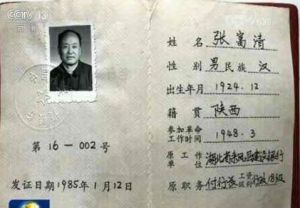 CCTV 13
姓名 张富清
性别 男 民族 汉
出生年月 1924.12
籍贯 陕西
参加革命工作时间 1948.3
原工作单位 湖北省来凤县建设银行
原职务 付行长 工资级别 行政18级
第16-002号
发证日期 1985年1月12日